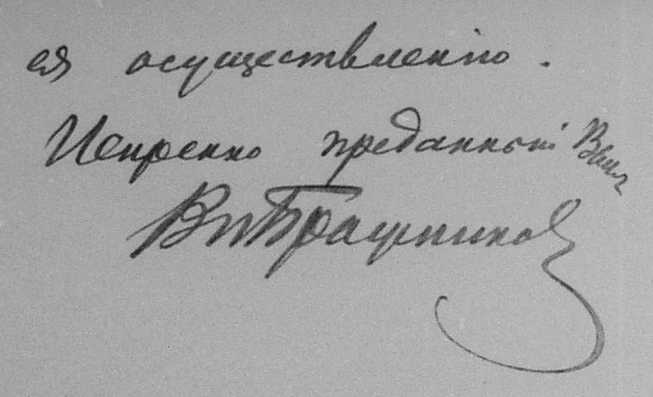 ея осуществленію.
Искренно преданный Вамъ
Вл Бражников